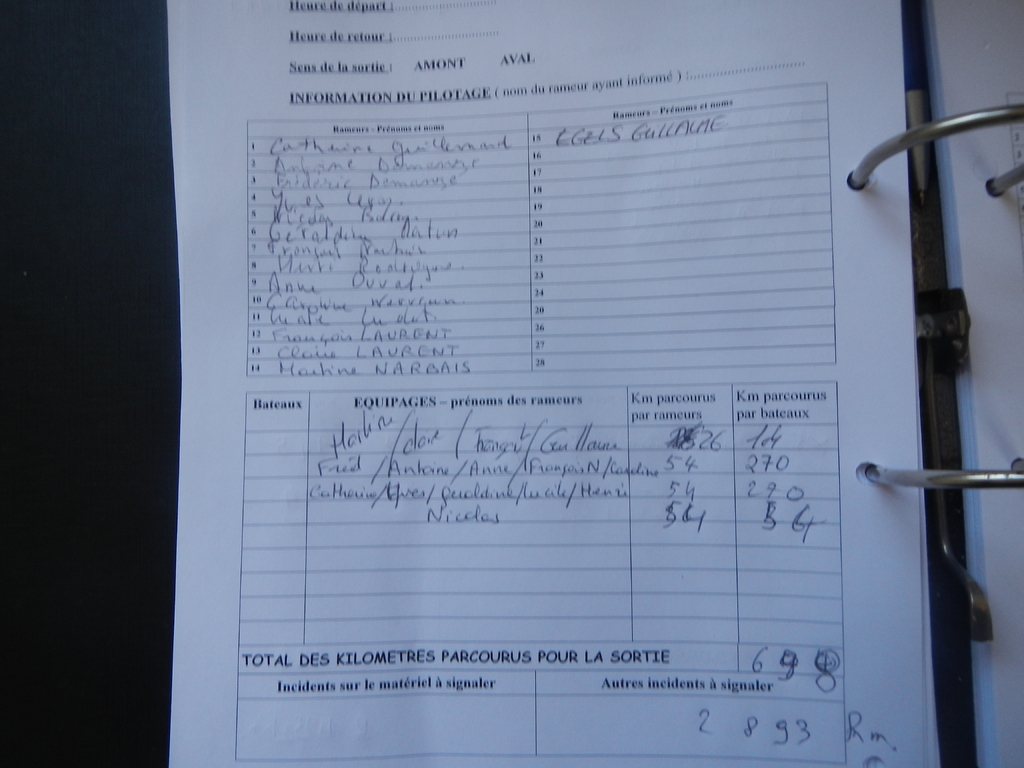 Heure de départ :
Heure de retour :
Sens de la sortie : AMONT AVAL
INFORMATION DU PILOTAGE ( nom du rameur ayant informé ) :
Rameurs - Prénoms et noms Rameurs - Prénoms et noms
1 Catherine Guillemard 15 EGELS GUILLAUME
2 Antoine 16
3 Frédéric 17
4 Yves 18
5 Nicolas 19
6 Géraldine 20
7 François 21
8 Henri Rodrigue 22
9 Anne Duval 23
10 Caroline 24
11 20
12 François LAURENT 26
13 Claire LAURENT 27
14 Martine NARBAIS 28
Bateaux EQUIPAGES – prénoms des rameurs Km parcourus par rameurs Km parcourus par bateaux
Martine / Claire / François / Guillaume 26
Fred / Antoine / Anne / François N / Caroline 54 270
Catherine / Yves / Géraldine / Lucile / Henri 54 270
Nicolas 54 54
TOTAL DES KILOMETRES PARCOURUS POUR LA SORTIE 6 8
Incidents sur le matériel à signaler Autres incidents à signaler
2 893 Km.